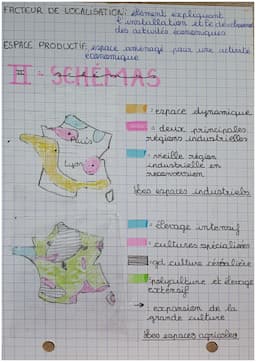 FACTEUR DE LOCALISATION: élément expliquant
l'installation et le développement
des activités économiques
ESPACE PRODUCTIF: espace aménagé pour une activité
économique
II - SCHÉMAS
= espace dynamique
= deux principales
régions industrielles
Paris
Lyon
= vieille région
industrielle en
reconversion
Les espaces industriels
= élevage intensif
= cultures spécialisées
= gd culture céréalière
= polyculture et élevage
extensif
→ expansion de la
grande culture
Les espaces agricoles